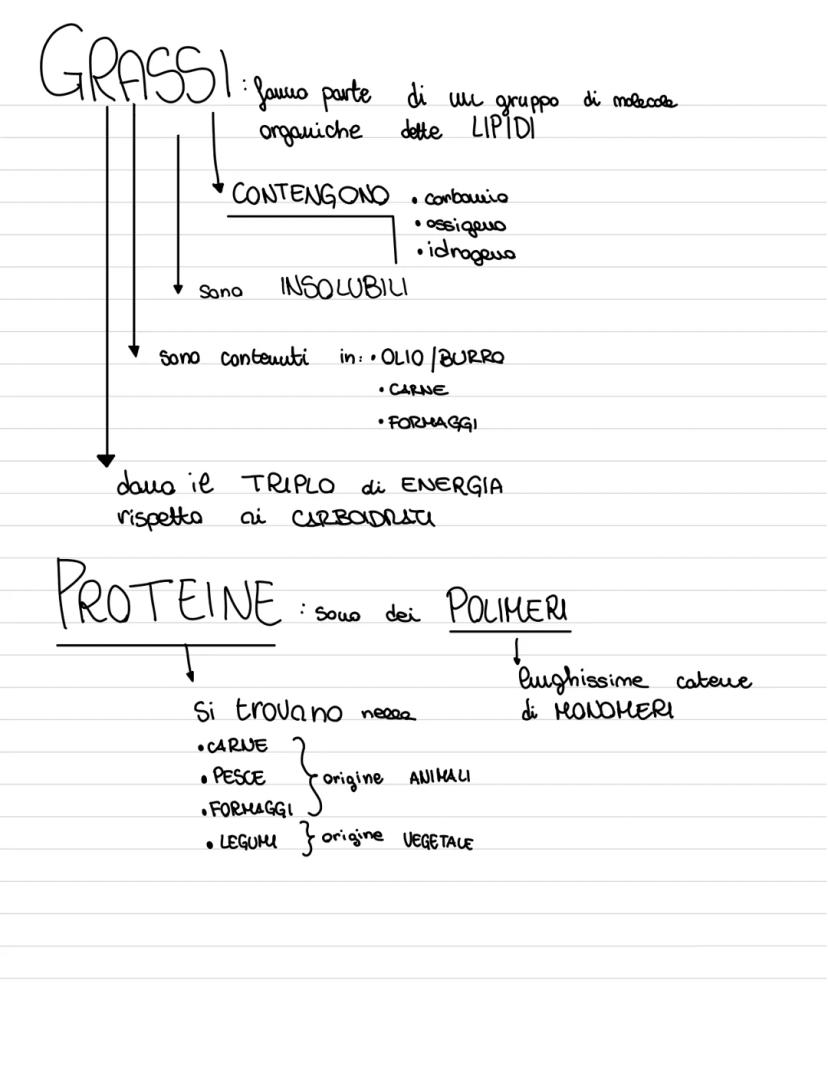 GRASSI : fanno parte di un gruppo di molecole
organiche dette LIPIDI
CONTENGONO • carbonio
• ossigeno
• idrogeno
sono INSOLUBILI
sono contenuti in: • OLIO/BURRO
• CARNE
• FORMAGGI
dano il TRIPLO di ENERGIA
rispetto ai CARBOIDRATI
PROTEINE : sono dei POLIMERI
lunghissime catene
di MONOMERI
si trovano nella
• CARNE
• PESCE } origine ANIMALI
• FORMAGGI
• LEGUMI } origine VEGETALE